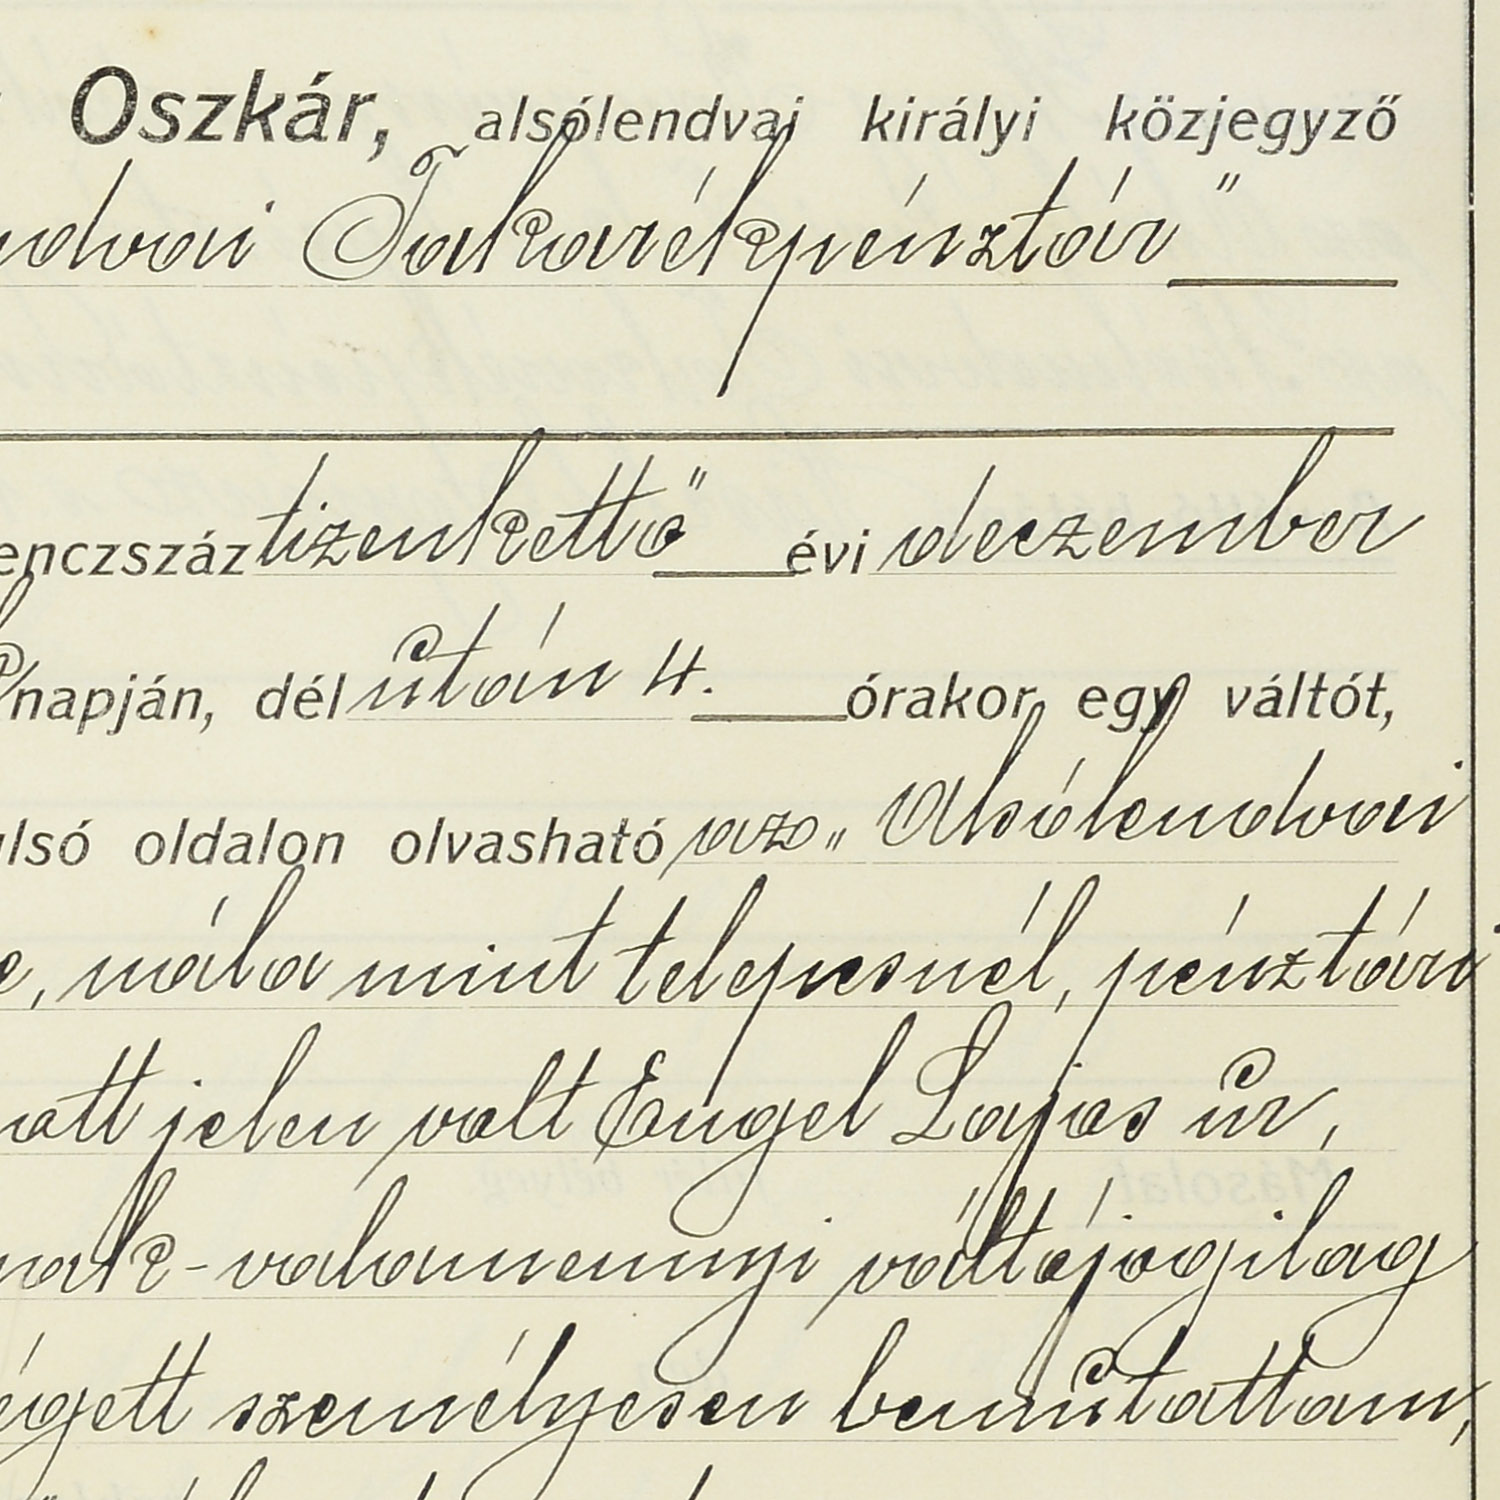 Oszkár, alsólendvai királyi közjegyző
ndvai Takarékpénztár"
enczszáz tizenkettő évi deczember
napján, dél után 4. órakor, egy váltót,
ulsó oldalon olvasható azo „Alsólendvai
e, nála mint telepesnél, pénztári
att jelen volt Engel Lajos úr,
nak - valamennyi váltójogilag
égett személyesen bemutattam,